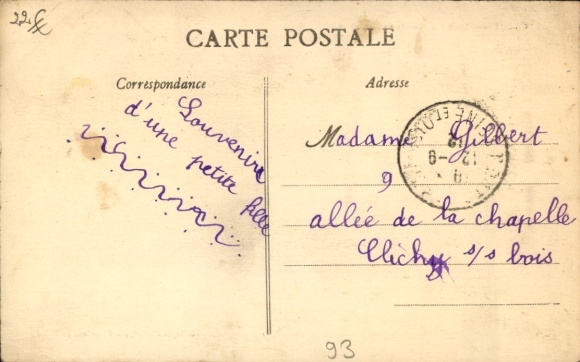 22 fx
CARTE POSTALE
Correspondance
Adresse
Souvenire
d'une petite fille
Madame Gilbert
9
allée de la chapelle
Clichy s/s bois
93